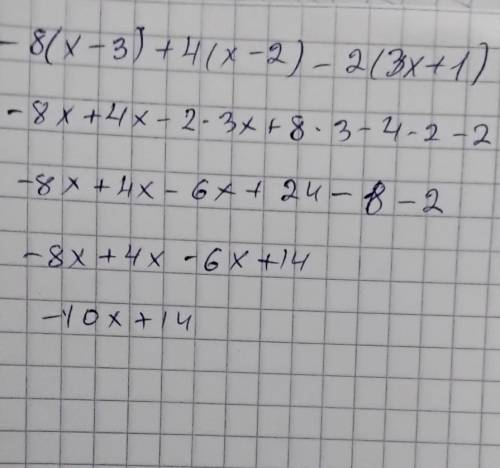 - 8(x-3)+4(x-2)-2(3x+1)
-8x+4x-2·3x+8·3-4·2-2
-8x+4x-6x+24-8-2
-8x+4x-6x+14
-10x+14